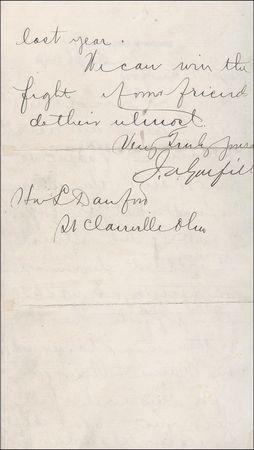 last year.
We can win the
fight if our friends
do their utmost.
Very Truly Yours
J. A. Garfield
Hon L Danford
St Clairsville Ohio